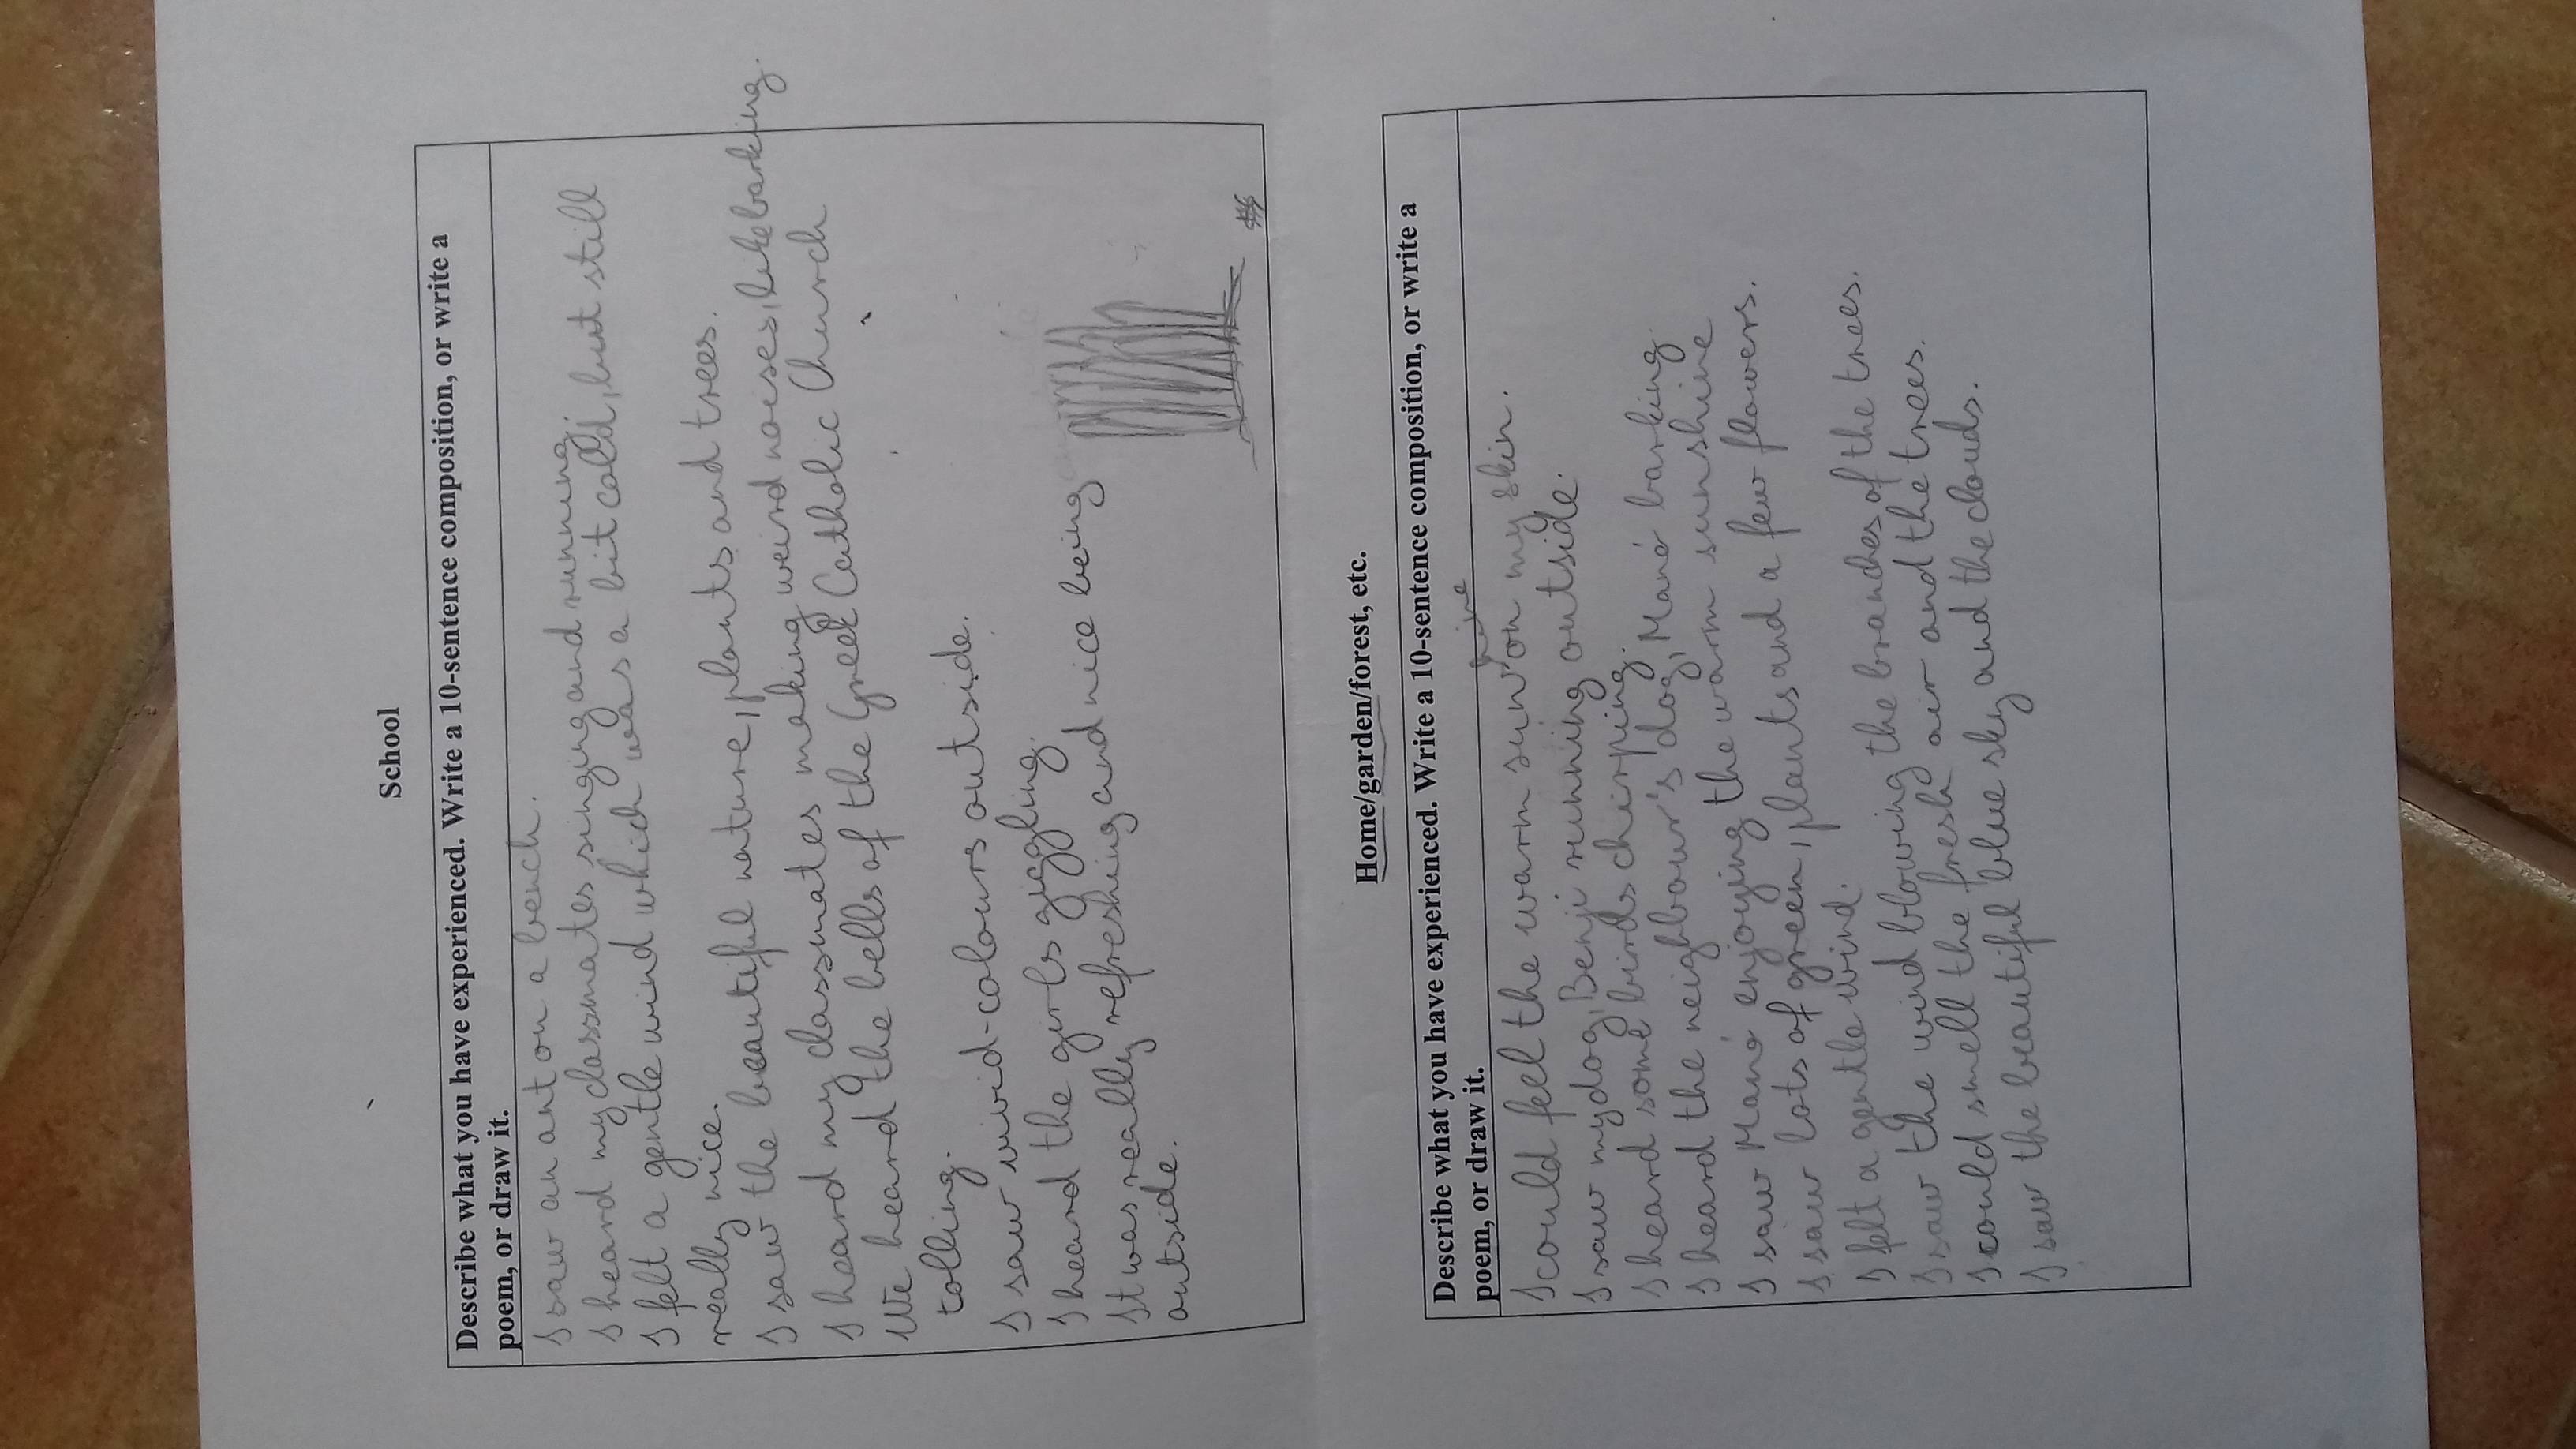 School
Describe what you have experienced. Write a 10-sentence composition, or write a
poem, or draw it.
I saw an ant on a bench.
I heard my classmates singing and running.
I felt a gentle wind which was a bit cold, but still
really nice.
I saw the beautiful nature, plants and trees.
I heard my classmates making weird noises, like barking.
We heard the bells of the Greek Catholic Church
tolling.
I saw vivid-colours outside.
I heard the girls giggling.
It was really refreshing and nice being
outside.
Home/garden/forest, etc.
Describe what you have experienced. Write a 10-sentence composition, or write a
poem, or draw it.
I could feel the warm sun on my skin.
I saw my dog, Benji running outside.
I heard some birds chirping.
I heard the neighbour's dog, Mané barking
I saw Mané enjoying the warm sunshine
I saw lots of green, plants and a few flowers.
I felt a gentle wind.
I saw the wind blowing the branches of the trees.
I could smell the fresh air and the trees.
I saw the beautiful blue sky and the clouds.